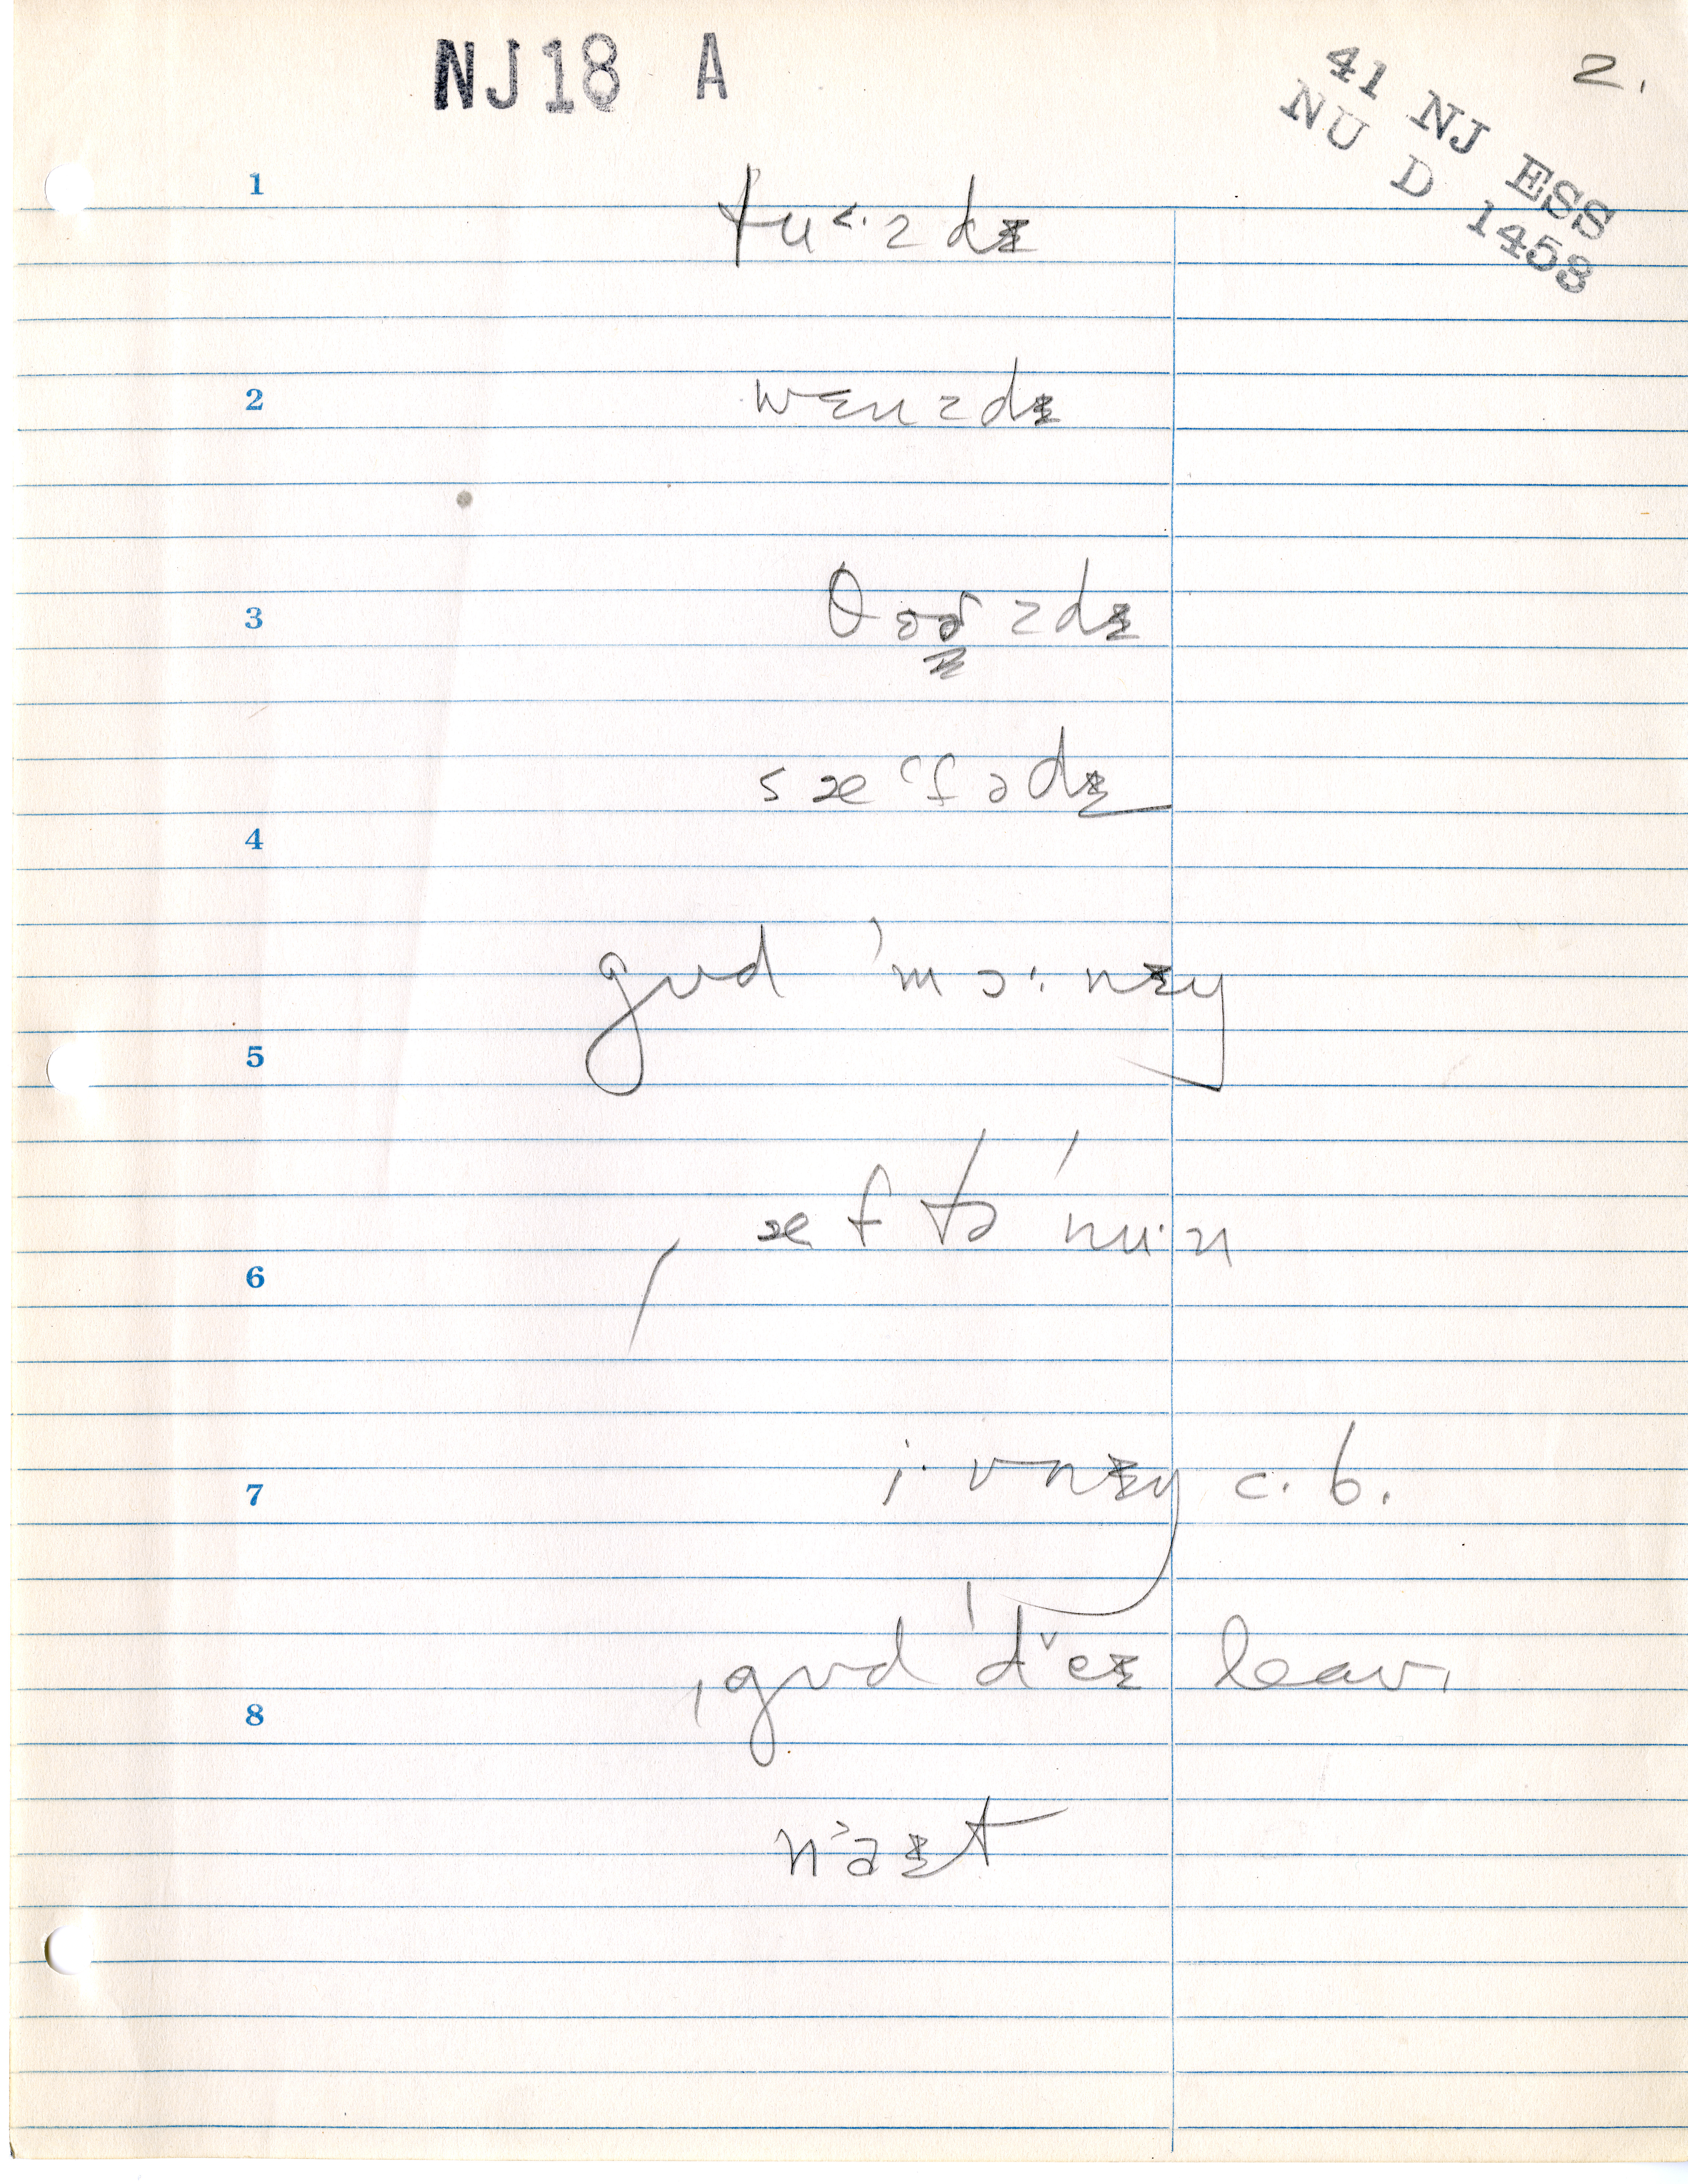 NJ18 A
2.
41 NJ ESS
NU D 1453
1
tu<·zdɪ
2
wɛnzdɪ
3
θɜɚzdɪ
sæˈfədɪ
4
gʊd ˈmɔ·nɪŋ
5
æftəˈnu·n
6
i·vnɪŋ c.b.
7
ˌgʊd ˈdˇeɪ leav.
8
naɪt